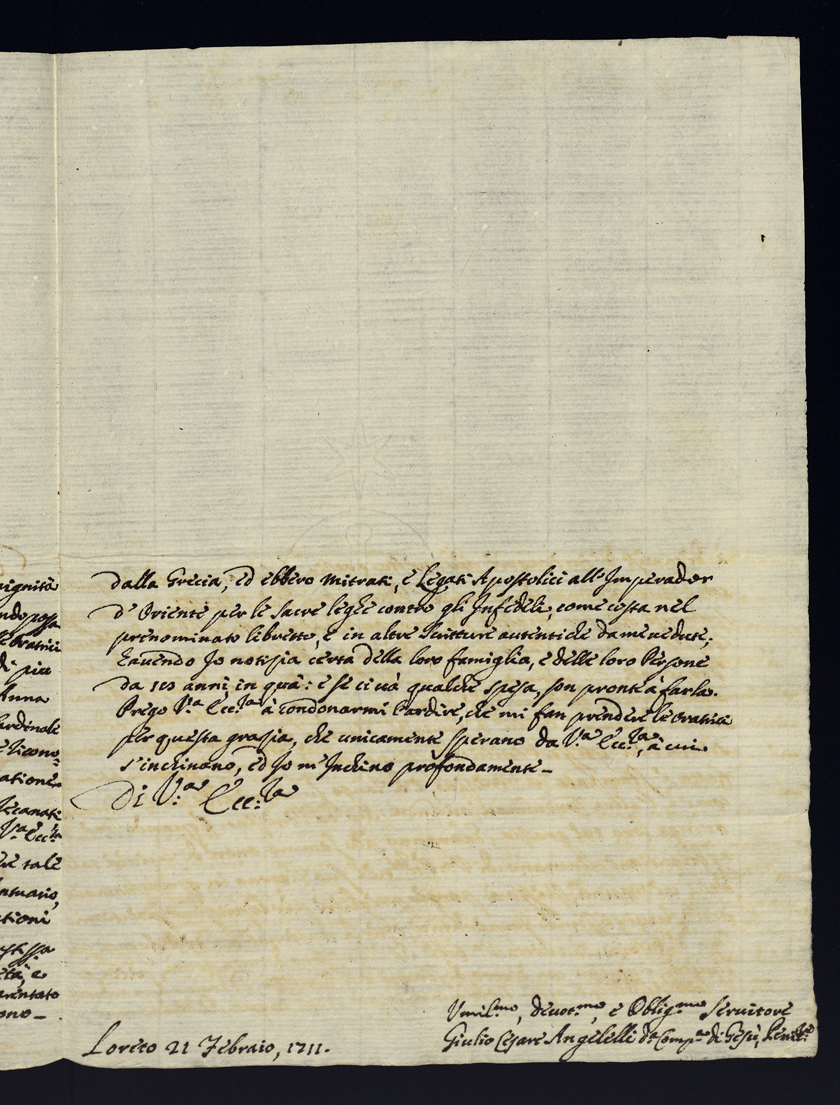 dignità
Anna
ardinale
ationi
rentato
dalla Grecia, ed ebbero Mitrati, e Legati Apostolici all'Imperador
d'Oriente per le Sacre leghe contro gli Infedeli, come costa nel
prenominato libretto, e in altre Scritture autentiche da me vedute;
havendo Jo notizia certa della loro famiglia, e delle loro Persone
da 110 anni in quà: e se ci và qualche spesa, son pronte à farla.
Prego V.ª Ecc.za à condonarmi l'ardire, che mi fan prendere le Oratrici
per questa grazia, che unicamente sperano da V.ª Ecc.za, à cui
s'inchinano, ed Jo m'Inchino profondamente_
Di V.ª Ecc.za
Umil.mo, devot.mo, e Oblig.mo Servitore
Giulio Cesare Angelelli da Comp.ª di Gesù,
Loreto 21 Febraio, 1711.